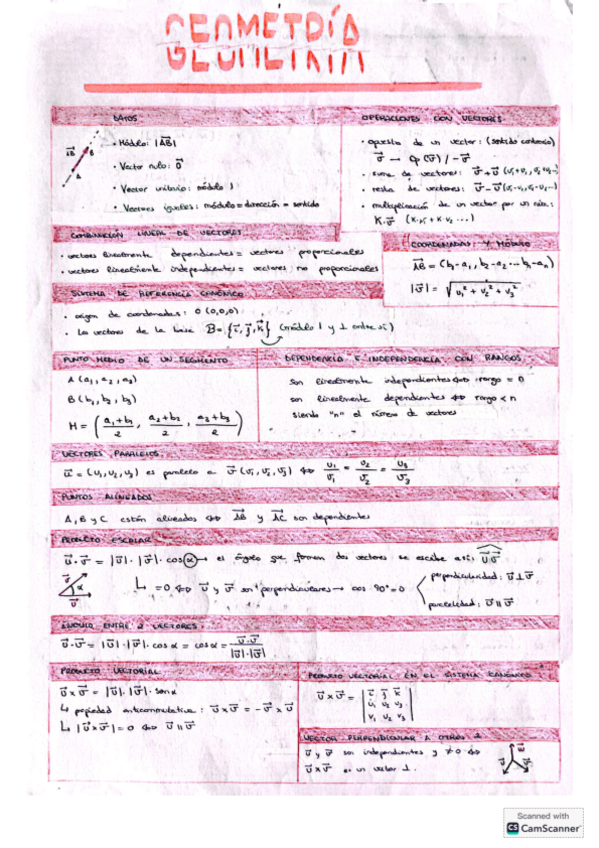 GEOMETRÍA
DATOS
• Módulo: |AB|
• Vector nulo: 0
• Vector unitario: módulo 1
• Vectores iguales: módulo = dirección = sentido
AB
A
B
OPERACIONES CON VECTORES
• opuesto de un vector: (sentido contrario)
v → Op (v) / -v
• suma de vectores: u + v (u₁+v₁, u₂+v₂...)
• resta de vectores: u - v (u₁-v₁, u₂-v₂...)
• multiplicación de un vector por un nº:
K·v (K·v₁ + K v₂ ...)
COMBINACIÓN LINEAL DE VECTORES
• vectores linealmente dependientes = vectores proporcionales
• vectores linealmente independientes = vectores no proporcionales
COORDENADAS Y MÓDULO
AB = (b₁-a₁, b₂-a₂ ... bₙ-aₙ)
|v| = √v₁² + v₂² + v₃²
SISTEMA DE REFERENCIA CANÓNICO
• origen de coordenadas: O (0,0,0)
• Los vectores de la base B = {i, j, k} (módulo 1 y ⊥ entre sí)
PUNTO MEDIO DE UN SEGMENTO
A (a₁, a₂, a₃)
B (b₁, b₂, b₃)
M = (a₁+b₁/2, a₂+b₂/2, a₃+b₃/2)
DEPENDENCIA E INDEPENDENCIA CON RANGOS
son linealmente independientes ⇔ rango = n
son linealmente dependientes ⇔ rango < n
siendo "n" el número de vectores
VECTORES PARALELOS
u = (u₁, u₂, u₃) es paralelo a v (v₁, v₂, v₃) ⇔ u₁/v₁ = u₂/v₂ = u₃/v₃
PUNTOS ALINEADOS
A, B y C están alineados ⇔ AB y AC son dependientes
PRODUCTO ESCALAR
u · v = |u| · |v| · cos α → el ángulo que forman dos vectores se escribe así: uv
v
α
u
↳ = 0 ⇔ u y v son perpendiculares → cos 90° = 0
perpendicularidad: u ⊥ v
paralelidad: u ∥ v
ÁNGULO ENTRE 2 VECTORES
u · v = |u| · |v| · cos α = cos α = u · v/|u| · |v|
PRODUCTO VECTORIAL
u x v = |u| · |v| · sen α
↳ propiedad anticonmutativa: u x v = - v x u
↳ |u x v| = 0 ⇔ u ∥ v
PRODUCTO VECTORIAL EN EL SISTEMA CANÓNICO
u x v = | i j k |
u₁ u₂ u₃
v₁ v₂ v₃
VECTOR PERPENDICULAR A OTROS 2
u y v son independientes y ≠ 0 ⇔
u x v es un vector ⊥.
Scanned with
CS CamScanner